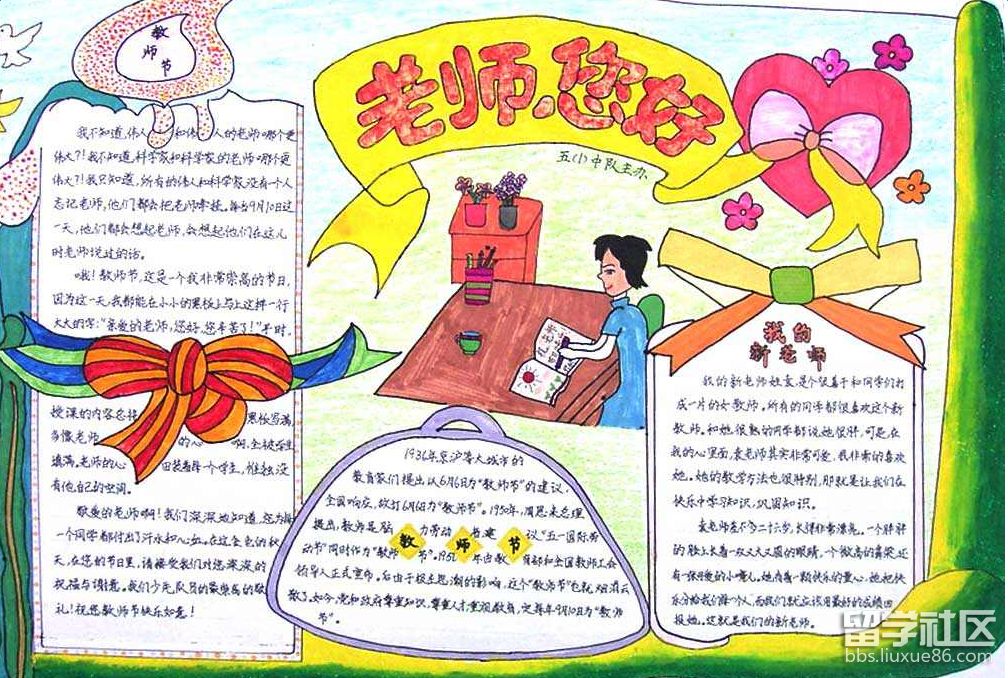 教师节
老师,您好
五(1)中队主办
我不知道,伟人和伟人的老师哪个更
伟大?!我不知道,科学家和科学家的老师哪个更
伟大?!我只知道,所有的伟人和科学家没有一个人
忘记老师,他们都会把老师牵挂。每当9月10日这
一天,他们都会想起老师,会想起他们在这儿
时老师说过的话。
哦!教师节,这是一个我非常崇高的节日,
因为这一天,我都能在小小的黑板上写上这样一行
大大的字:“亲爱的老师,您好,您辛苦了!”平时,
授课的内容总
黑板写满,
多像老师
的心
啊,全被学生
填满。老师的心
田装着每一个学生,惟独没
有他自己的空间。
敬爱的老师啊!我们深深地知道,您为每
一个同学都付出了汗水和心血。在这金色的秋
天,在您的节日里,请接受我们对您深深的
祝福与谢意。我们少先队员的最崇高的敬
礼!祝您教师节快乐如意!
1936年京沪等大城市的
教育家们提出以6月6日为“教师节”的建议,
全国响应,改订6月6日为“教师节”。1950年,周恩来总理
提出,教师是脑力劳动者,建议“五一国际劳
教师节
动节”同时作为“教师节”。1951年由教育部和全国教师工会
领导人正式宣布。后由于极左思潮的影响,这个“教师节”也就烟消云
散了。如今,党和政府尊重知识,尊重人才,重视教育,定每年9月10日为“教师
节”。
我的
新老师
我的新老师姓袁,是个很善于和同学们打
成一片的女教师。所有的同学都很喜欢这个新
教师。和她很熟的同学都说她很胖,可是,在
我的心里面,袁老师其实非常可爱,我非常的喜欢
她。她的教学方法也很特别,那就是让我们在
快乐中学习知识,巩固知识。
袁老师差不多二十六岁,长得非常漂亮。一个胖胖
的脸上长着一双又大又圆的眼睛,一个微高的鼻梁,还
有一张可爱的小嘴儿。她有着一颗快乐的童心。她把快
乐分给我们每个人,而我们就应该用最好的成绩回
报她。这就是我们的新老师。
留学社区
bbs.liuxue86.com